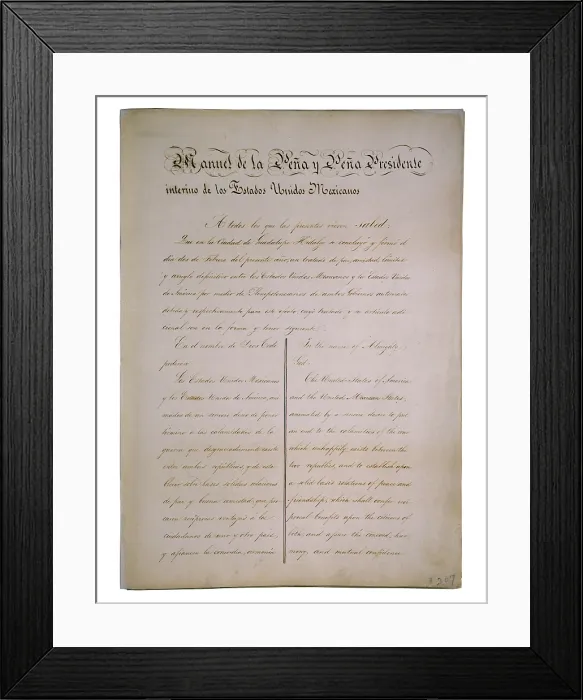 Manuel de la Peña y Peña Presidente
interino de los Estados Unidos Mexicanos
A todos los que las presentes vieren sabed,
Que en la Ciudad de Guadalupe Hidalgo se concluyó y firmó el
dia dos de Febrero del presente año, un tratado de paz, amistad, limites
y arreglo definitivo entre los Estados Unidos Mexicanos y los Estados Unidos
de America por medio de Plenipotenciarios de ambos Gobiernos autorizados
debida y respectivamente para este efecto, cuyo tratado y su articulo adi-
cional son en la forma y tenor siguiente.
En el nombre de Dios Todo
poderoso.
Los Estados Unidos Mexicanos
y los Estados Unidos de America, ani-
mados de un sincero deseo de poner
término a las calamidades de la
guerra que desgraciadamente existe
entre ambas repúblicas y de esta-
blecer sobre bases sólidas relaciones
de paz y buena amistad, que pro-
curen reciprocas ventajas a los
ciudadanos de uno y otro pais,
y afiancen la concordia, armonia
In the name of Almighty
God.
The United States of America,
and the United Mexican States,
animated by a sincere desire to put
an end to the calamities of the war
which unhappily exists between the
two republics, and to establish upon
a solid basis relations of peace and
friendship, which shall confer reci-
procal benefits upon the citizens of
both, and assure the concord, har-
mony and mutual confidence
207